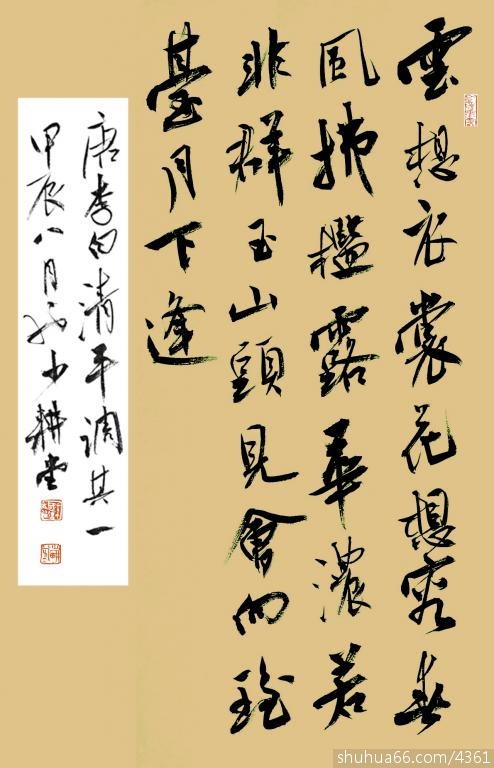 雲想衣裳花想容春
風拂檻露華濃若
非群玉山頭見會向瑤
臺月下逢
唐李白清平调其一
甲辰八月於少耕堂
shuhua66.com/4361